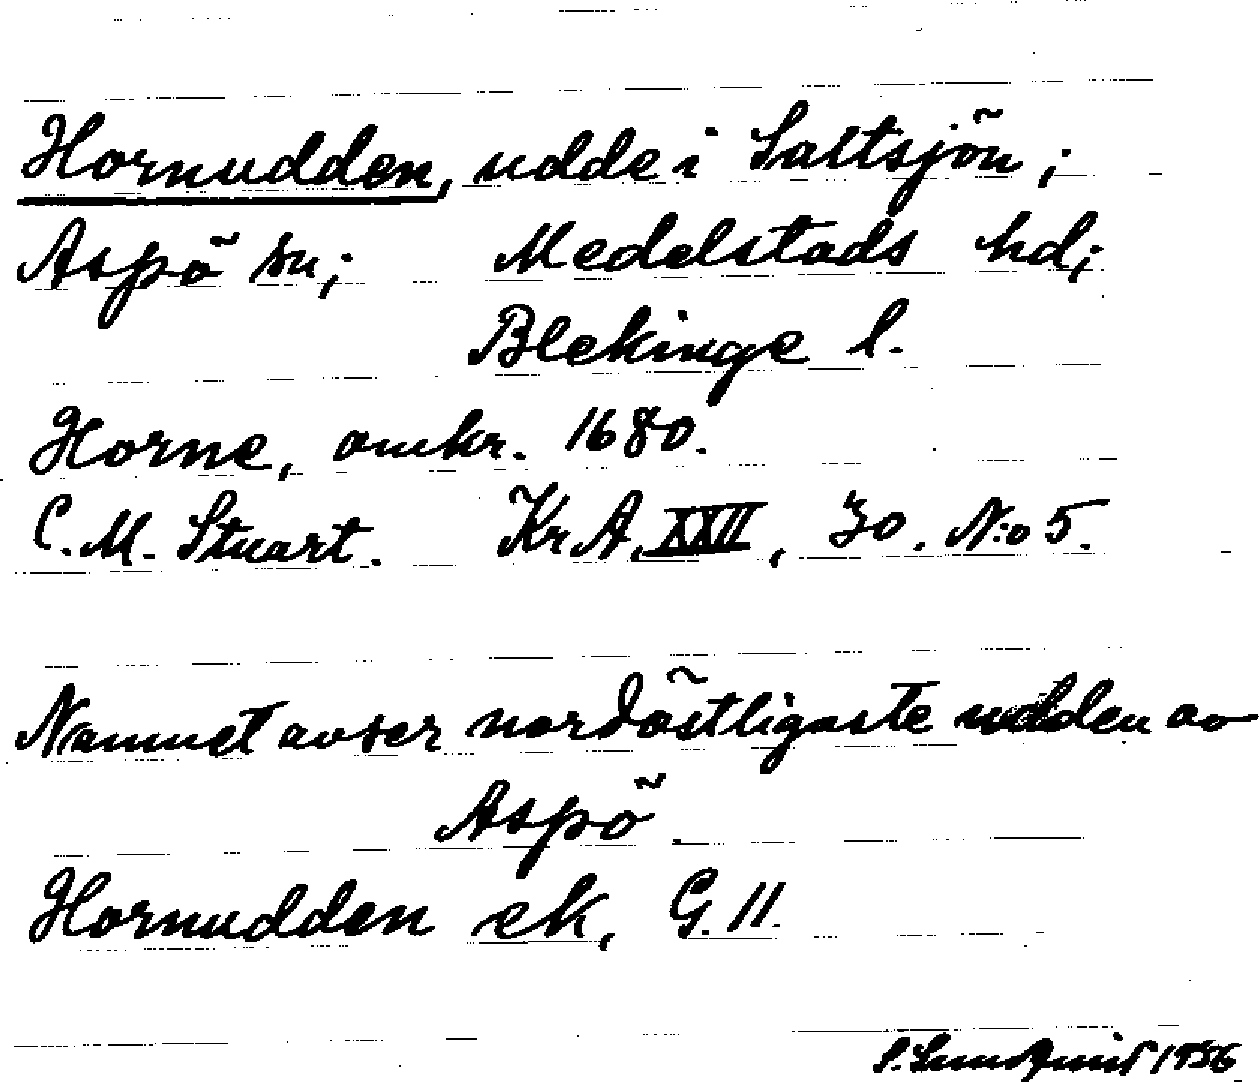 Hornudden, udde i Saltsjön;
Aspö sn; Medelstads hd;
Blekinge l.
Horne, omkr. 1680.
C. M. Stuart. Kr. A. XXII, 30. N:o 5.
Namnet avser nordöstligaste udden av
Aspö
Hornudden ek, G. 11.
1956